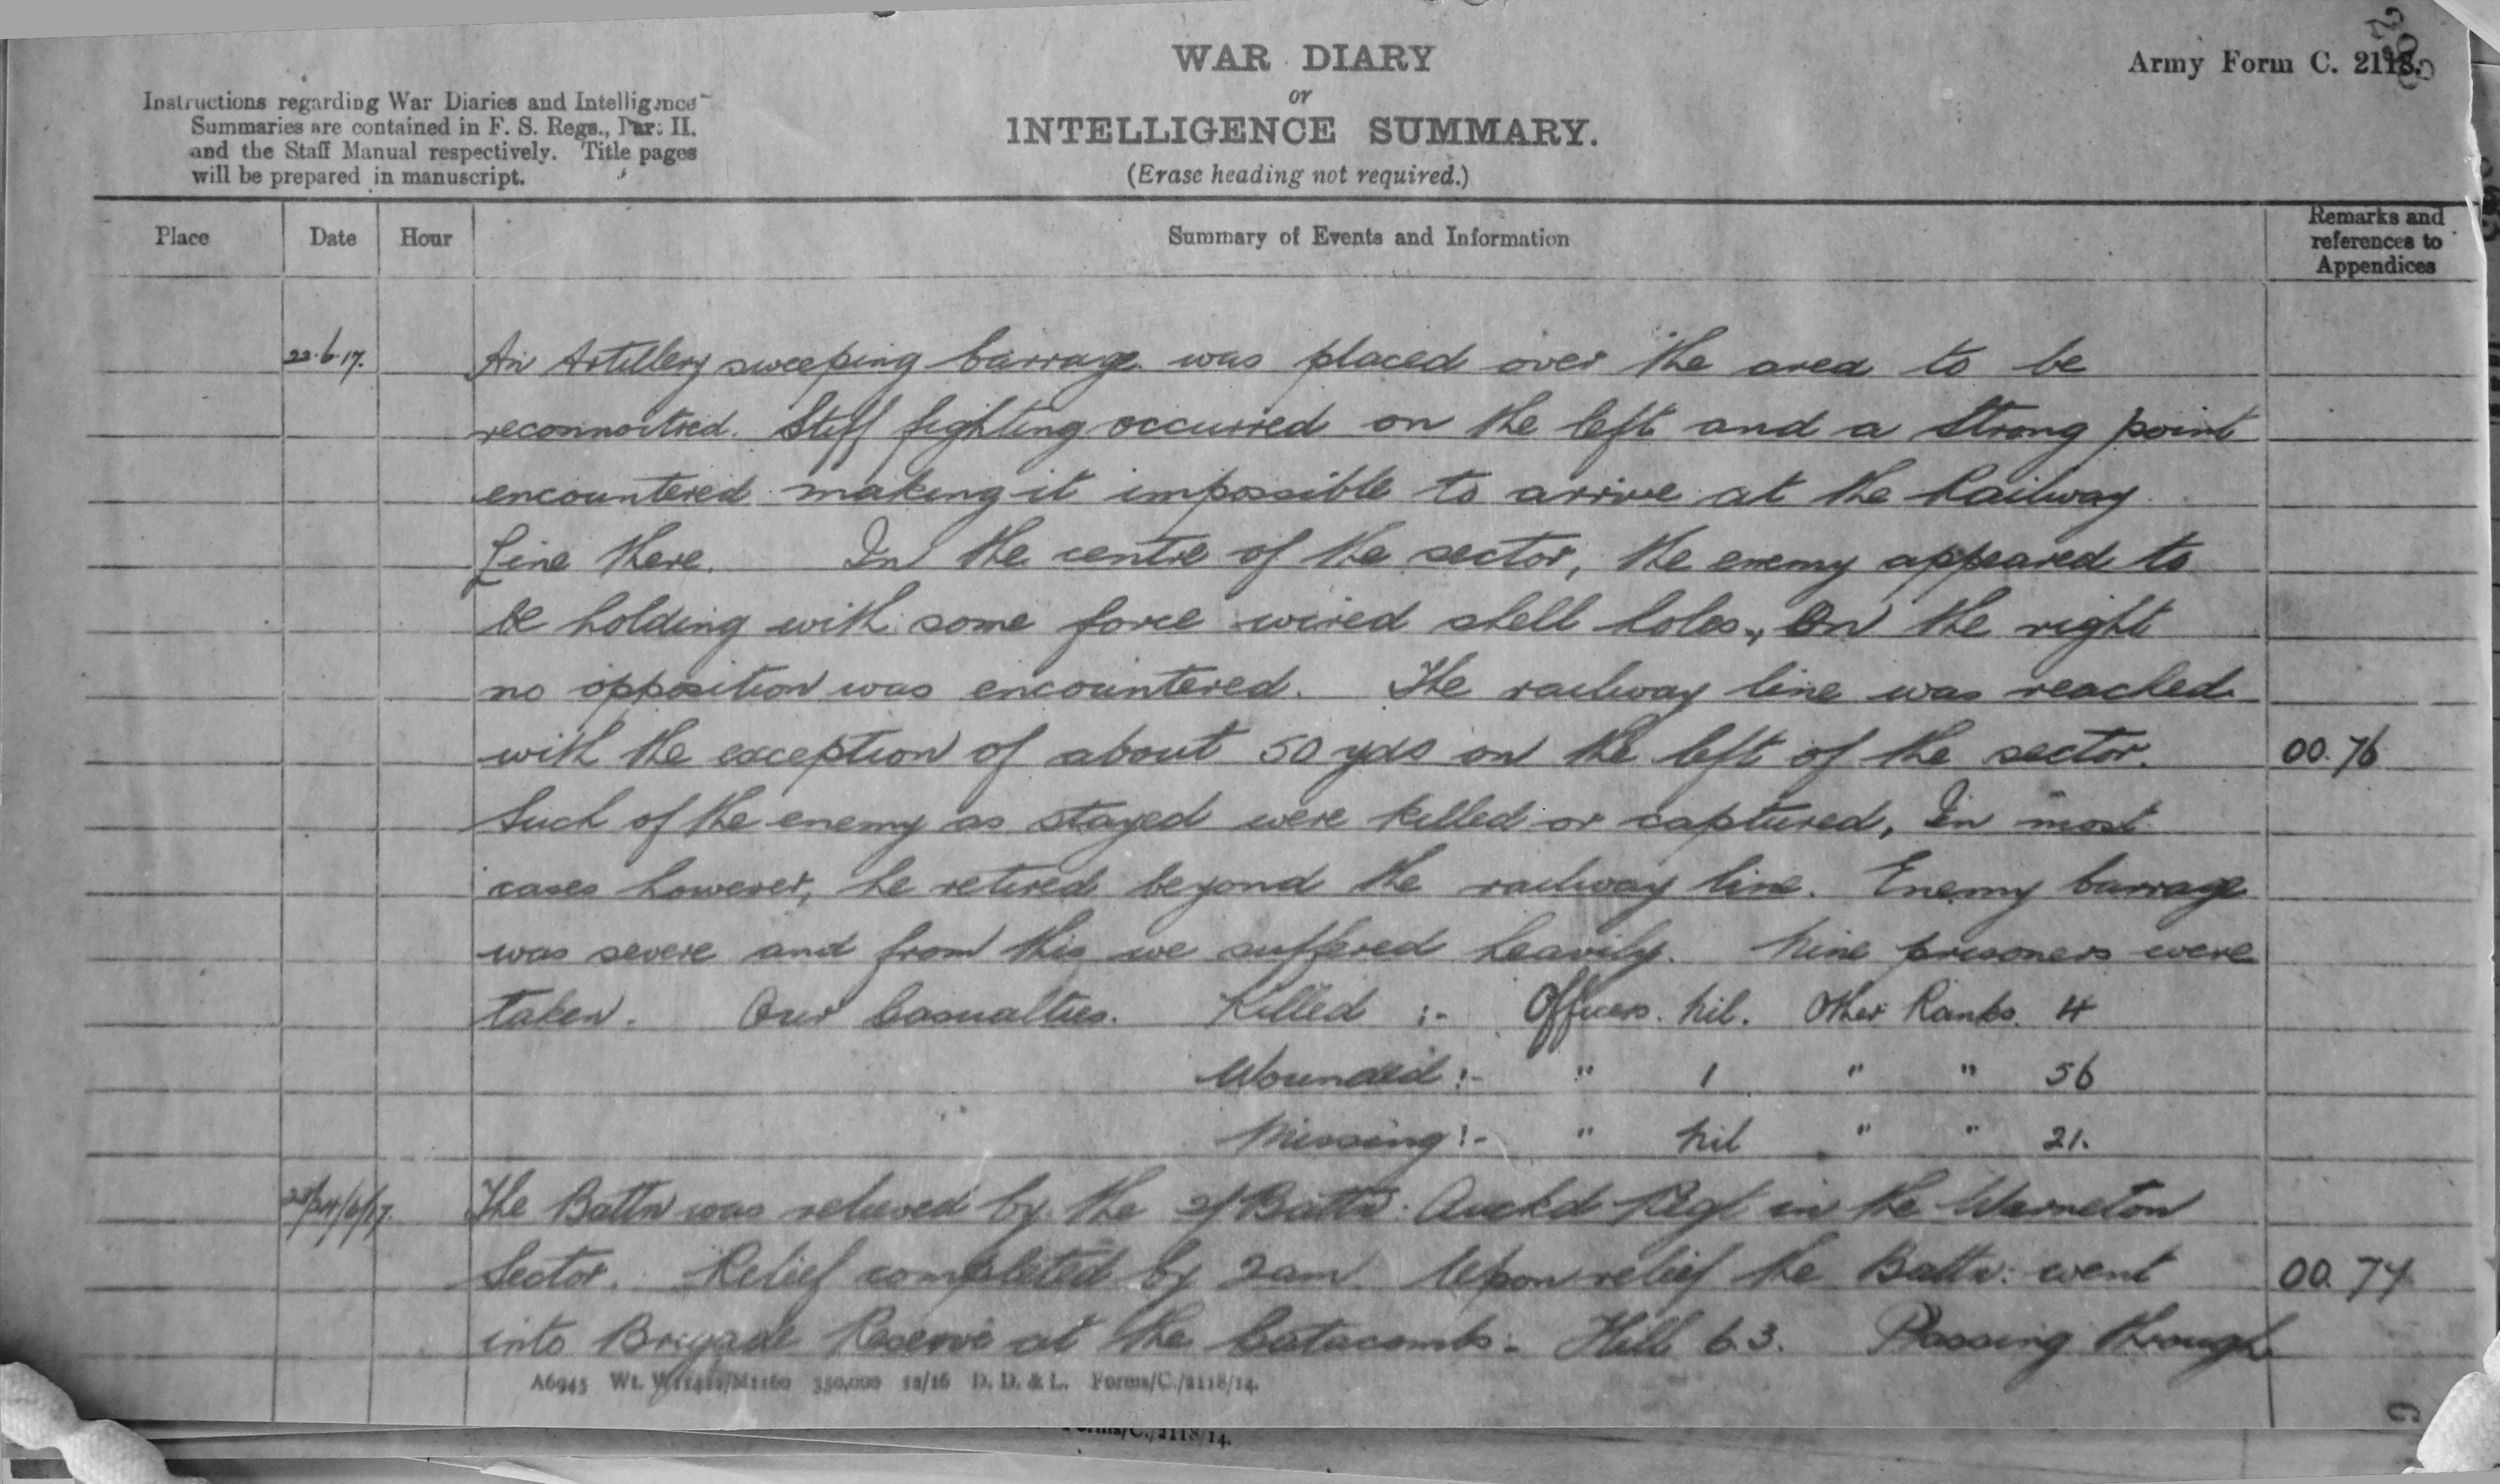 WAR DIARY
or
INTELLIGENCE SUMMARY.
(Erase heading not required.)
Army Form C. 2118.
Instructions regarding War Diaries and Intelligence
Summaries are contained in F. S. Regs., Part II.
and the Staff Manual respectively. Title pages
will be prepared in manuscript.
Place Date Hour Summary of Events and Information Remarks and references to Appendices
22.6.17. An Artillery sweeping barrage was placed over the area to be
reconnoitred. Stiff fighting occurred on the left and a Strong point
encountered making it impossible to arrive at the Railway
Line there. In the centre of the sector, the enemy appeared to
be holding with some force wired shell holes., On the right
no opposition was encountered. The railway line was reached
with the exception of about 50 yds on the left of the sector. OO. 76
Such of the enemy as stayed were killed or captured, In most
cases however, he retired beyond the railway line. Enemy barrage
was severe and from this we suffered heavily. Nine prisoners were
taken. Our Casualties. Killed :- Officers. Nil. Other Ranks. 4
Wounded :- " 1 " " 56
Missing :- " Nil " " 21.
23/24/6/17. The Battn was relieved by the 2/Battn. Auckd Regt in the Warneton
Sector. Relief completed by 2am. Upon relief the Battn: went OO. 77
into Brigade Reserve at the Catacombs. Hill 63. Passing through
A6945 Wt. W11422/M1160 350,000 12/16 D. D. & L. Forms/C./2118/14.
Forms/C./2118/14.